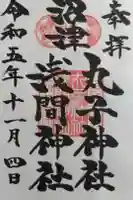 奉拝
沼津
丸子神社
浅間神社
令和五年十一月四日